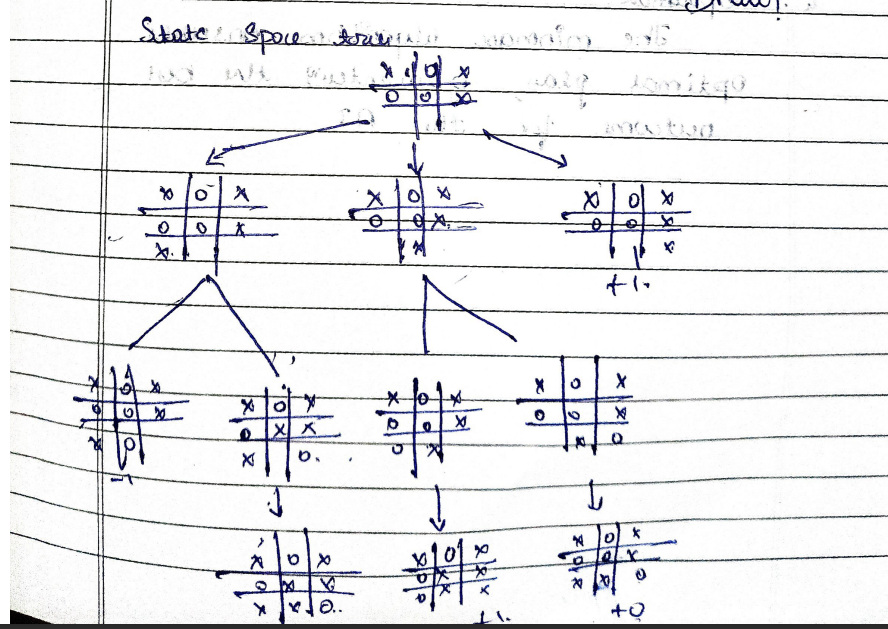 State Space tree
X O X
O O X
X O X
O O X
X.
X O X
O O X.
X
X O X
O O X
X
+1.
X O X
O O X
X O
-1
X O X
O X X
X O.
X O X
O O X
O X
X O X
O O X
X O
X O X
O X X
X X O..
X O X
O X X
O X X
+1.
X O X
O O X
X X O
+0